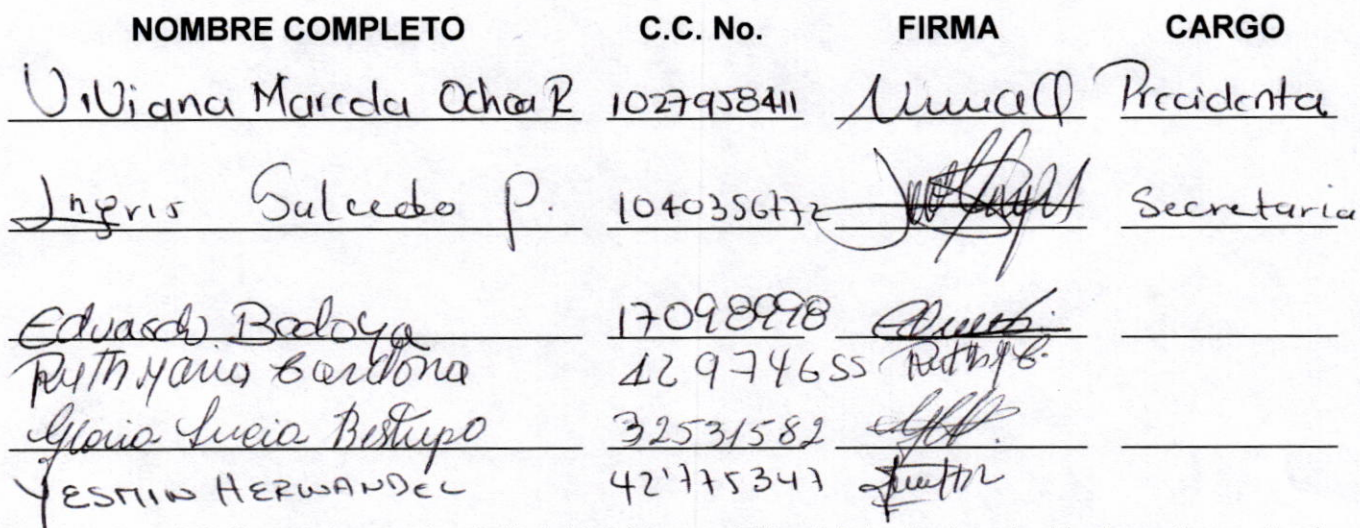 NOMBRE COMPLETO C.C. No. FIRMA CARGO
Viviana Marcela Ochoa R 1027958411 Precidenta
Ingris Salcedo P. 1040356772 Secretaria
Eduardo Bedoya 17098998
Ruth Maria Cardona 42974655
Gloria Lucia Restrepo 32531582
YESMIN HERNANDEZ 42'775347